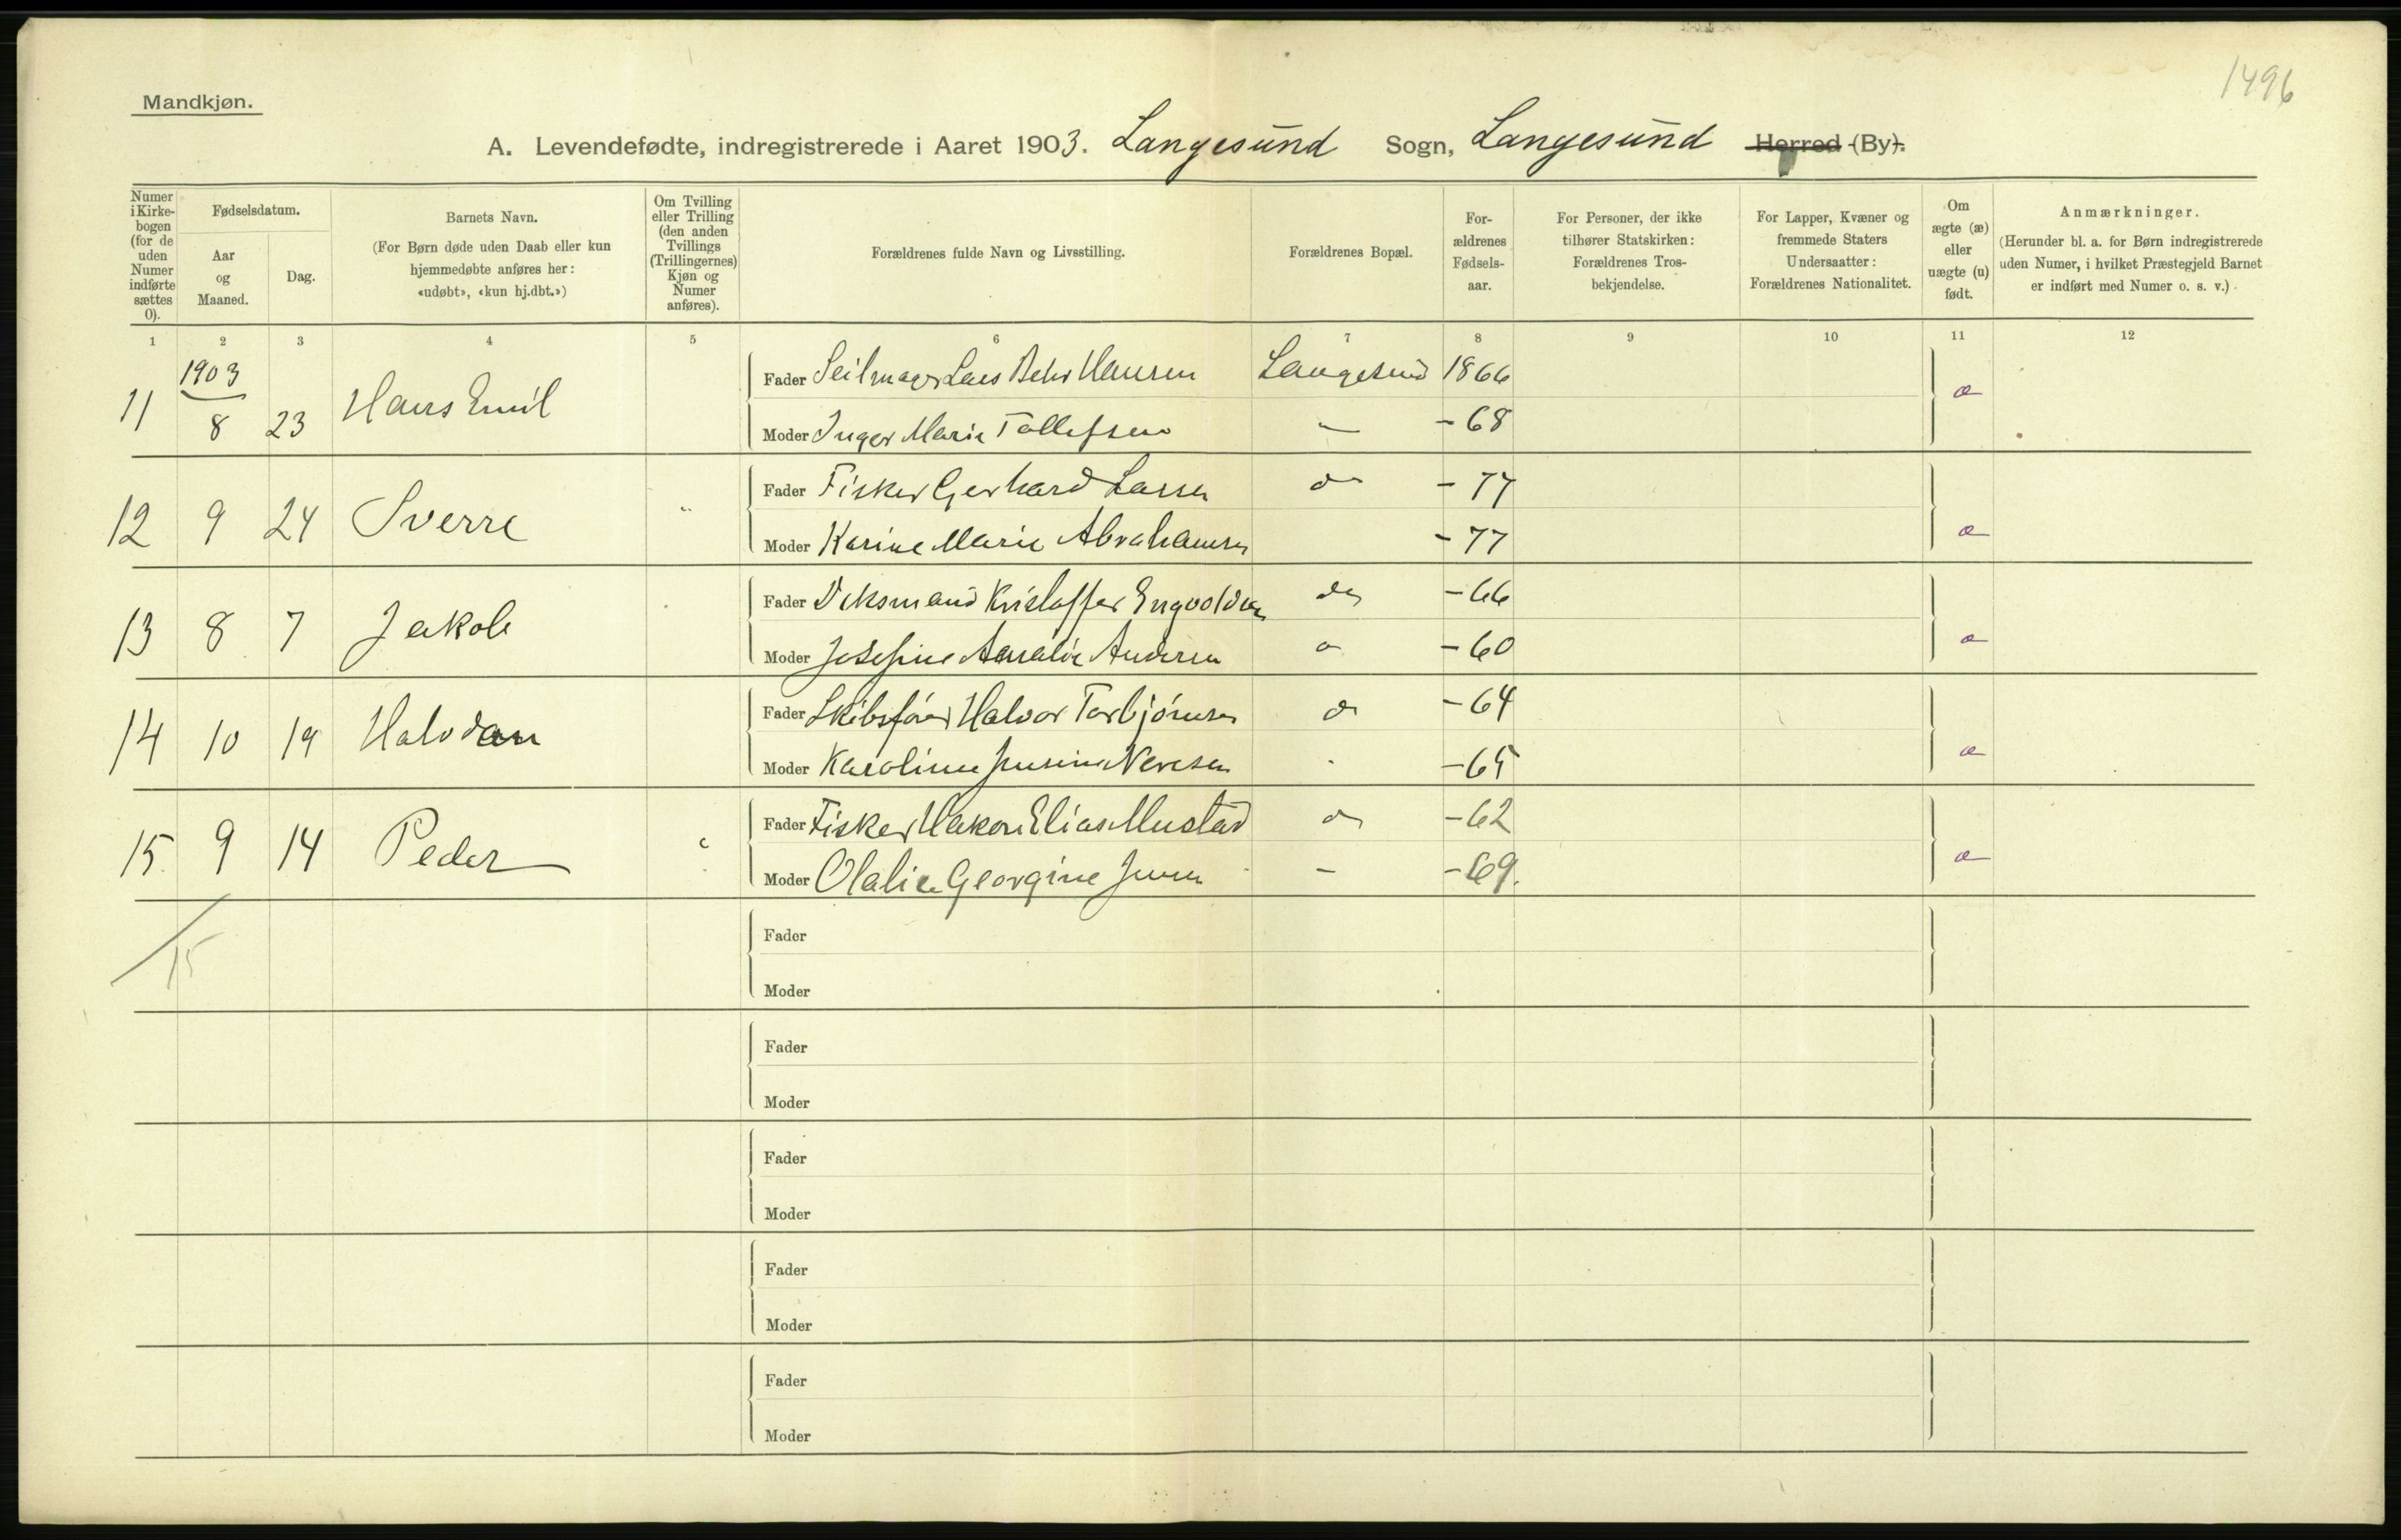 1496
Mandkjøn.
A. Levendefødte, indregistrerede i Aaret 1903. Langesund Sogn, Langesund Herred (By).
Numer i Kirkebogen (for de uden Numer indførte sættes 0).
Fødselsdatum.
Aar og Maaned.
Dag.
Barnets Navn.
(For Børn døde uden Daab eller kun hjemmedøbte anføres her: «udøbt», «kun hj.dbt.»)
Om Tvilling eller Trilling (den anden Tvillings (Trillingernes) Kjøn og Numer anføres).
Forældrenes fulde Navn og Livsstilling.
Forældrenes Bopæl.
Forældrenes Fødselsaar.
For Personer, der ikke tilhører Statskirken: Forældrenes Trosbekjendelse.
For Lapper, Kvæner og fremmede Staters Undersaatter: Forældrenes Nationalitet.
Om ægte (æ) eller uægte (u) født.
Anmærkninger.
(Herunder bl. a. for Børn indregistrerede uden Numer, i hvilket Præstegjeld Barnet er indført med Numer o. s. v.)
1 2 3 4 5 6 7 8 9 10 11 12
1903
11 8 23 Hans Emil Fader Seilmager Lars Behr Hansen Langesund 1866 æ
Moder Inger Marie Tollefsen — - 68
12 9 24 Sverre Fader Fisker Gerhard Larsen do - 77 æ
Moder Karine Marie Abrahamsen - 77
13 8 7 Jakob Fader Kristoffer do - 66 æ
Moder Josefine Amalie Andersen - 60
14 10 19 Halvdan Fader Skibsfører Halvor Torbjørnsen do - 64 æ
Moder Karoline - 65
15 9 14 Peder Fader Fisker Hakon Elias Mustad do - 62 æ
Moder Olalie Georgine Jensen — - 69.
15
Fader
Moder
Fader
Moder
Fader
Moder
Fader
Moder
Fader
Moder